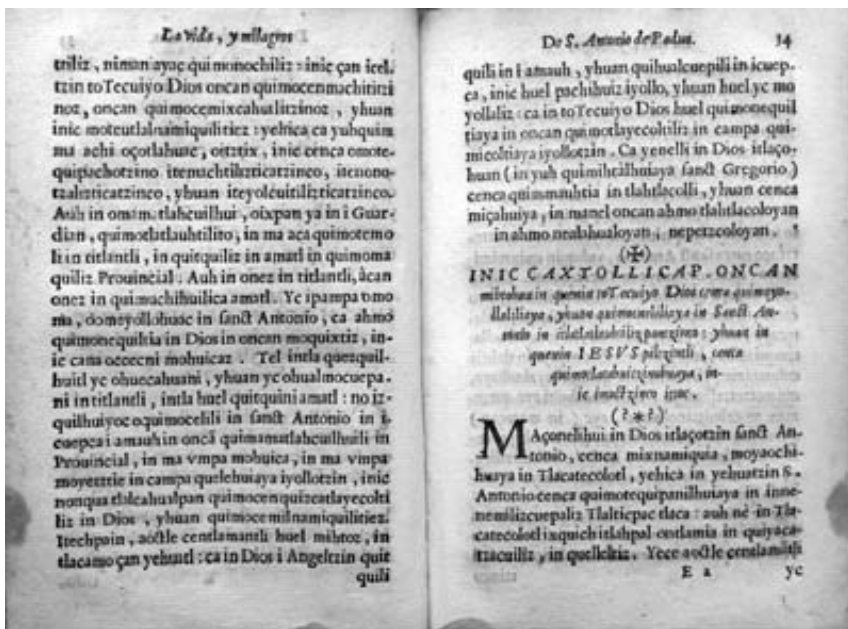 La vida, y milagros
triliz, niman ayac quimonochiliz: inic çan icel-
tzin toTecuiyo Dios oncan quimocenmachititzi
noz, oncan quimocemixcahuilitzinoz, yhuan
inic moteutlalnamiquilitiez: yehica ca yuhquin
ma achi oçotlahuac, oitztix, inic cenca omote-
quipachotzino itemachtilizticatzinco, itenono-
tzalizticatzinco, yhuan iteyolcuitiliztIcatzinco.
Auh in omim. tlahcuilhui, oixpan ya in i Guar-
dian, quimotlatlauhtilito, in ma aca quimotemo
li in titlantli, in quitquiliz in amatl in quimoma
quiliz Prouincial. Auh in onez in titlantli, àcan
onez in quimachihuilica amatl. Ye ipampa omo
ma, omeyollohuac in sanct Antonio, ca ahmò
quimonequiltia in Dios in oncan moquixtiz, in-
ic cana occecni mohuicaz. Tel intla quezquil-
huitl yc ohuecahuani, yhuan yc ohualmocuepa-
ni in titlantli, intla huel quitquini amatl: no iz-
quilhuiyoc oquimocelili in sanct Antonio in i-
cuepca i amauh in oncã quimamatlahcuilhuili in
Prouincial, in ma vmpa mohuica, in ma vmpa
moyetztie in campa quelehuiaya iyollotzin, inic
nonqua tlalcahualpan quimocenquizcatlayecolti
liz in Dios, yhuan quimocemilnamiquilitiez.
Itechpain, aoctle centlamantli huel mihtoz, in
tlacamo çan yehuatl: ca in Dios i Angeltzin quit
quili
De S. Antonio de Padua. 34
quili in i amauh, yhuan quihualcuepili in icuep-
ca, inic huel pachihuiz iyollo, yhuan huel yc mo
yollaliz: ca in toTecuiyo Dios huel quimonequil
tiaya in oncan quimotlayecoltiliz in campa qui-
micoltiaya iyollotzin. Ca yenelli in Dios itlaço-
huan (in yuh quimihtalhuiaya sanct Gregorio)
cenca quimmauhtia in tlahtlacolli, yhuan cenca
miçahuiya, in manel oncan ahmo tlahtlacoloyan
in ahmo nealahualoyan, nepetzcoloyan.
(✠)
INIC CAXTOLLI CAP. ONCAN
mihtohua in quenin toTecuiyo Dios cenca quimoyo-
llaliliaya, yhuan in Sanct An-
tonio in yhuan in
quenin IESVS piltzintli, cenca
in-
ic
(?*?)
MAçonelihui in Dios itlaçotzin sanct An-
tonio, cenca mixnamiquia, moyaochi-
huaya in Tlacatecolotl, yehica in yehuatzin S.
Antonio cenca quimotequipanilhuiaya in inne-
nemilizcuepaliz Tlalticpac tlaca: auh nè in Tla-
catecolotl ixquich itlahpal centlamia in quiyaca-
tzacuiliz, in quelleltiz. Yece aoctle centlamãtli
E 2 yc